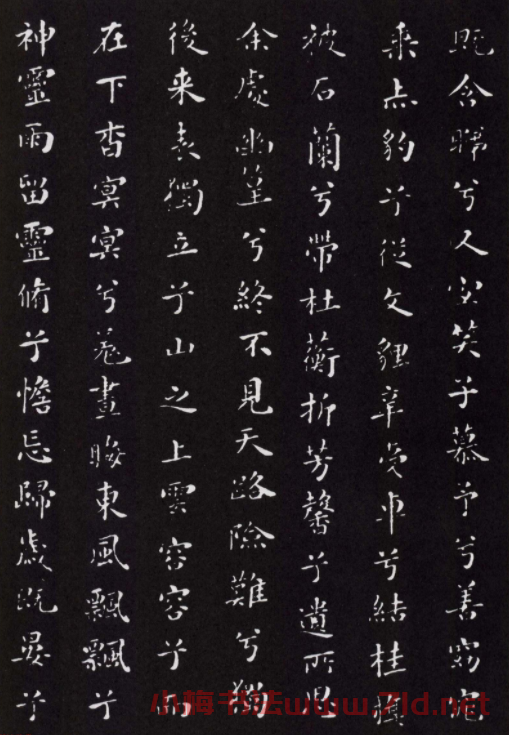 既含睇兮又宜笑子慕予兮善窈窕
乘赤豹兮從文貍辛夷車兮結桂旗
被石蘭兮帶杜蘅折芳馨兮遺所思
余處幽篁兮終不見天路險難兮獨
後来表獨立兮山之上雲容容兮而
在下杳冥冥兮羌晝晦東風飄飄兮
神靈雨留靈脩兮憺忘歸歲既晏兮
小梅书法www.7ld.net